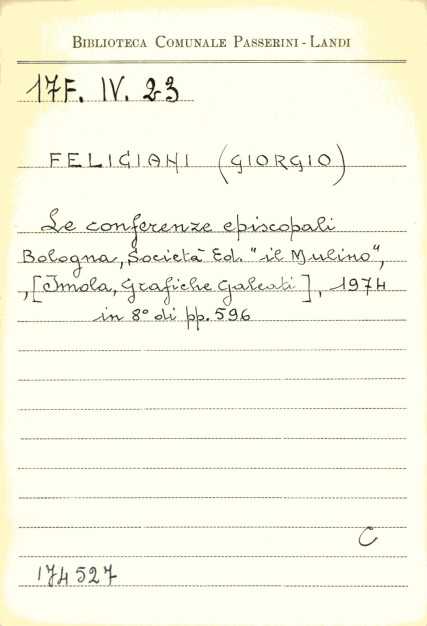 BIBLIOTECA COMUNALE PASSERINI - LANDI
17F. IV. 23
FELICIANI (GIORGIO)
Le conferenze episcopali
Bologna, Società Ed. "il Mulino",
,[Imola, Grafiche Galeati], 1974
in 8° di pp. 596
C
174527